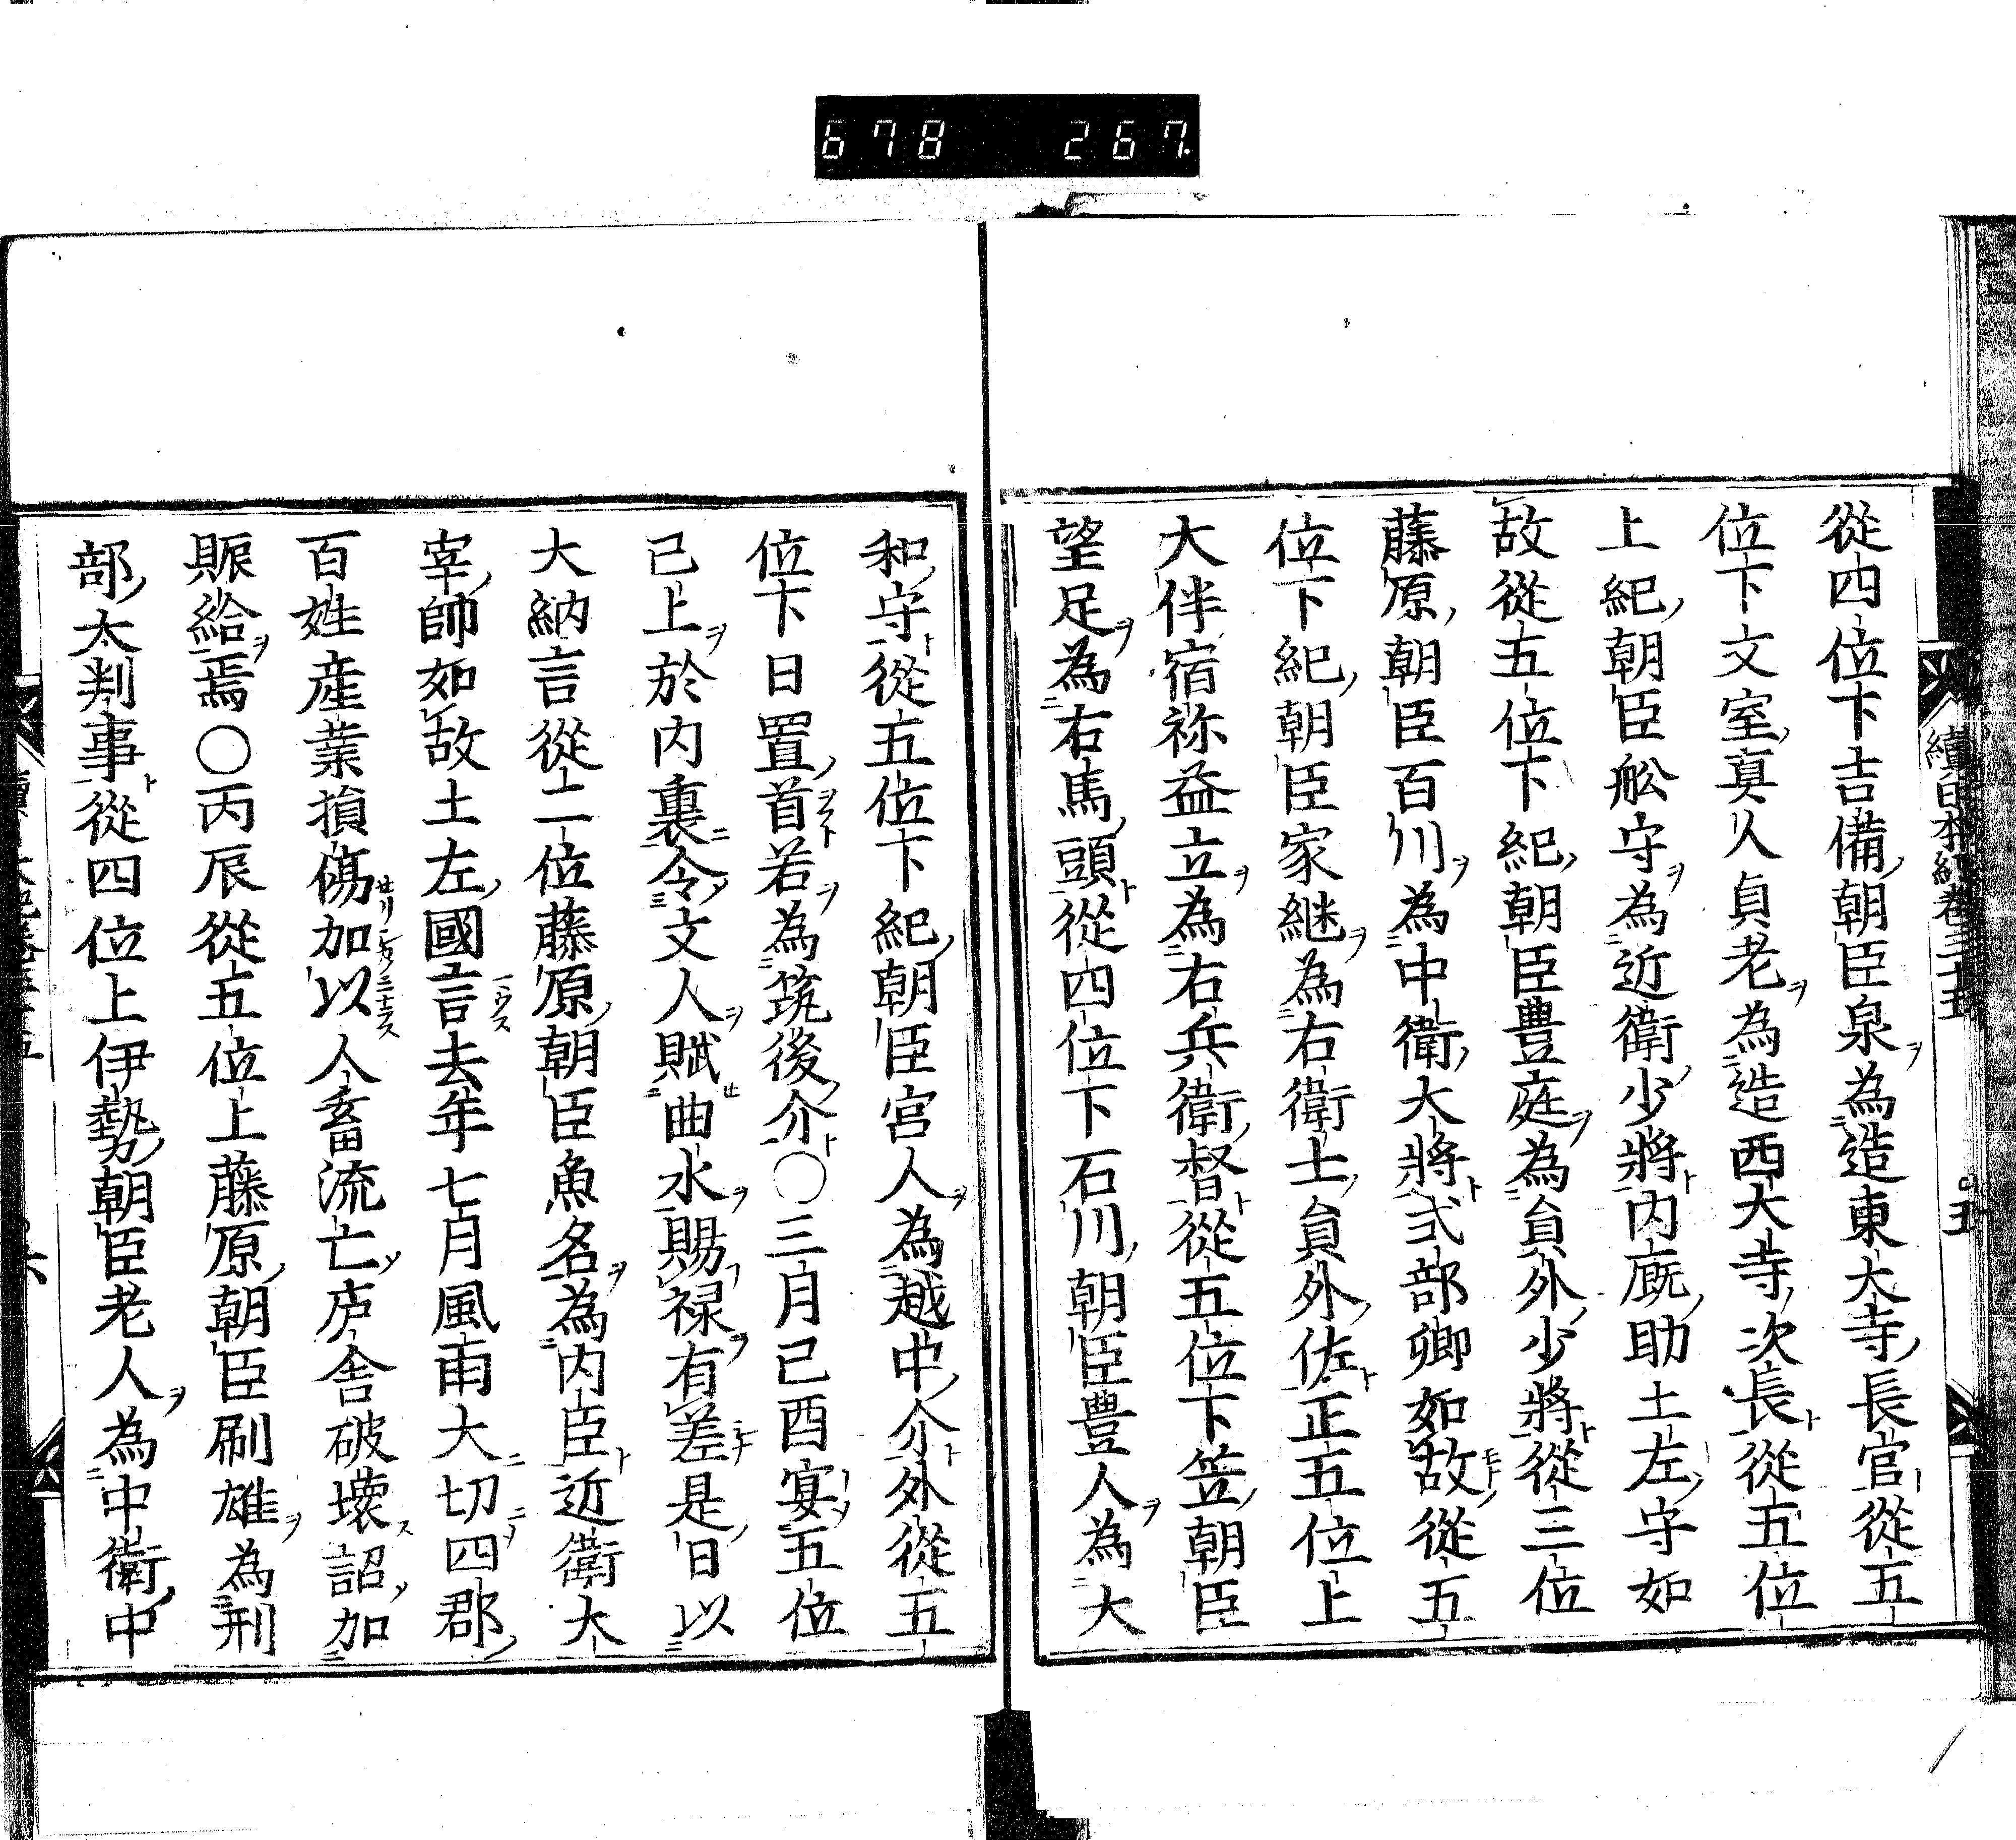 678 267
續日本紀卷三十五 五
從四位下吉備朝臣泉為造東大寺長官從五
位下文室真人貞老為造西大寺次長從五位
上紀朝臣舩守為近衛少將內厩助土左守如
故從五位下紀朝臣豊庭為負外少將從三位
藤原朝臣百川為中衛大將式部卿如故從五
位下紀朝臣家継為右衛士負外佐正五位上
大伴宿祢益立為右兵衛督從五位下笠朝臣
望足為右馬頭從四位下石川朝臣豊人為大
和守從五位下紀朝臣宮人為越中介外從五
位下日置首若為筑後介○三月己酉宴五位
已上於內裏令文人賦曲水賜祿有差是日以
大納言從二位藤原朝臣魚名為內臣近衛大
宰帥如故土左國言去年七月風雨大切四郡
百姓産業損傷加以人畜流亡庐舎破壊詔加
賑給焉○丙辰從五位上藤原朝臣刷雄為刑
部太判事從四位上伊勢朝臣老人為中衛中